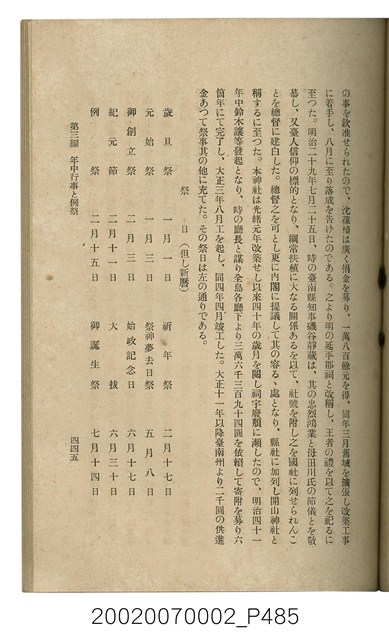 の事を欽准せられたので、沈葆楨は廣く捐金を募り、一萬八百餘元を得、同年三月舊域を擴張し改築工事
に着手し、八月に至り落成を告げたのである。之より明の延平郡祠と改稱し、王者の禮を以て之を祀るに
至つた。明治二十九年七月二十五日、時の臺南縣知事磯谷靜藏は、其の忠烈鴻業と母田川氏の節儀とを敬
慕し、又臺人信仰の標的となり、綱常扶植に大なる關係あるを以て、社號を附し之を國社に列せられんこ
とを總督に建白した。總督之を可とし更に內閣に提議して其の容るゝ處となり、縣社に加列し開山神社と
稱するに至つた。本神社は光緒元年改築せし以來四十年の歲月を閱し祠宇廢頽に瀕したので、明治四十一
年中鈴木讓等發起となり、時の廳長と謀り全島各廳下より三萬六千三百九十四圓を依賴して寄附を募り六
箇年にて完了し、大正三年八月工を起し、同四年四月竣工した。大正十一年以降臺南州より二千圓の供進
金あつて祭事其の他に充てた。その祭日は左の通りである。
祭日（但し新曆）
歲旦祭 一月一日 祈年祭 二月十七日
元始祭 一月三日 祭神夢去日祭 五月八日
御創立祭 二月三日 始政記念日 六月十七日
紀元節 二月十一日 大祓 六月三十日
例祭 二月十五日 御誕生祭 七月十四日
第三編 年中行事と例祭 四四五
20020070002_P485